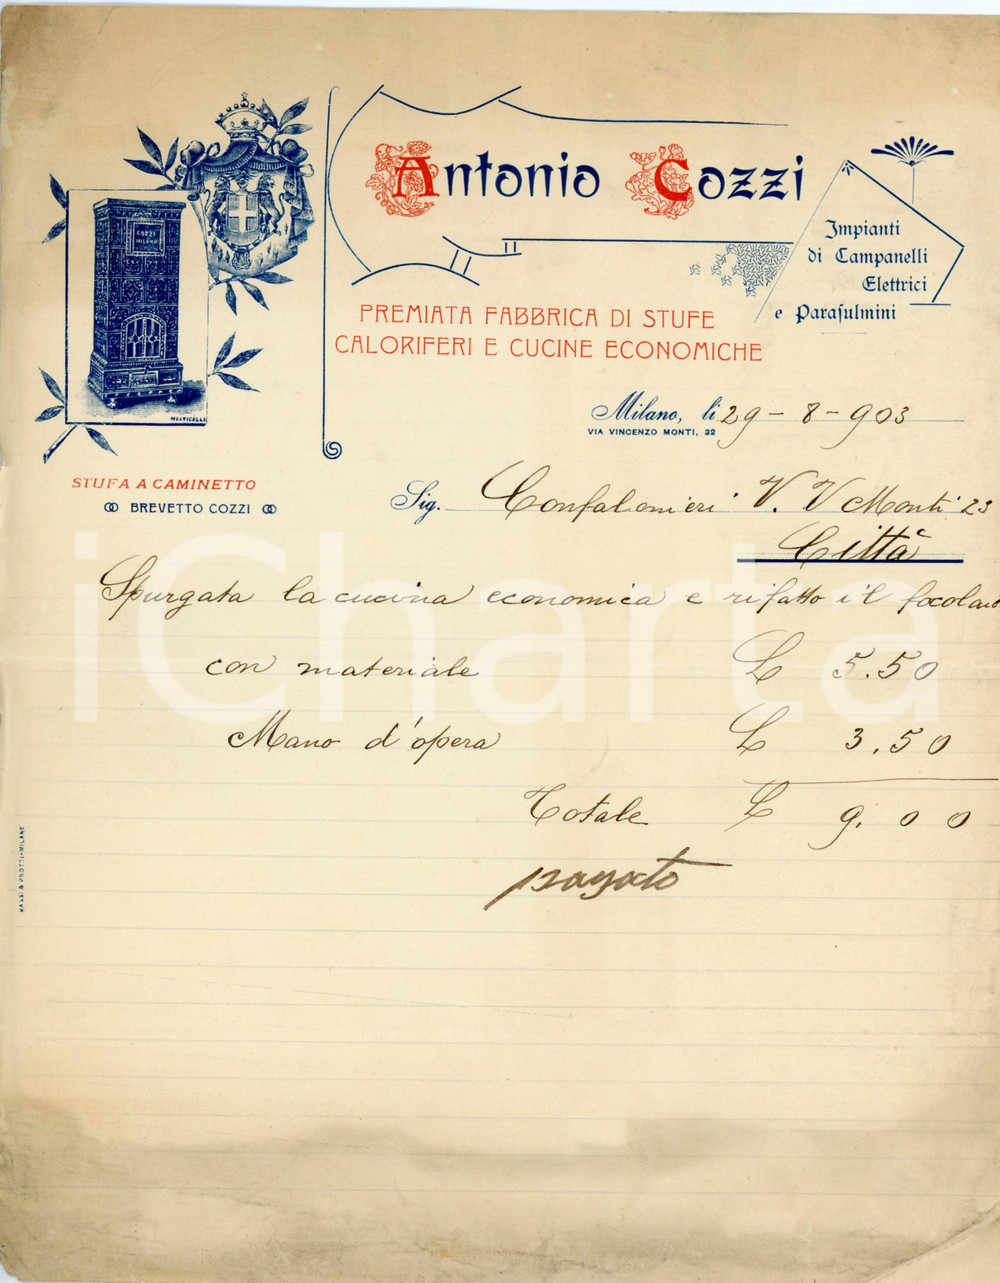 Antonio Cozzi
Impianti
di Campanelli
Elettrici
e Parafulmini
PREMIATA FABBRICA DI STUFE
CALORIFERI E CUCINE ECONOMICHE
COZZI
MILANO
MONTICELLI
STUFA A CAMINETTO
BREVETTO COZZI
Milano, li 29-8-903
VIA VINCENZO MONTI, 32
Sig. Confalonieri V. V Monti 23
Città
Spurgata la cucina economica e rifatto il focolare
con materiale £ 5.50
Mano d'opera £ 3.50
Totale £ 9.00
pagato
iCharta